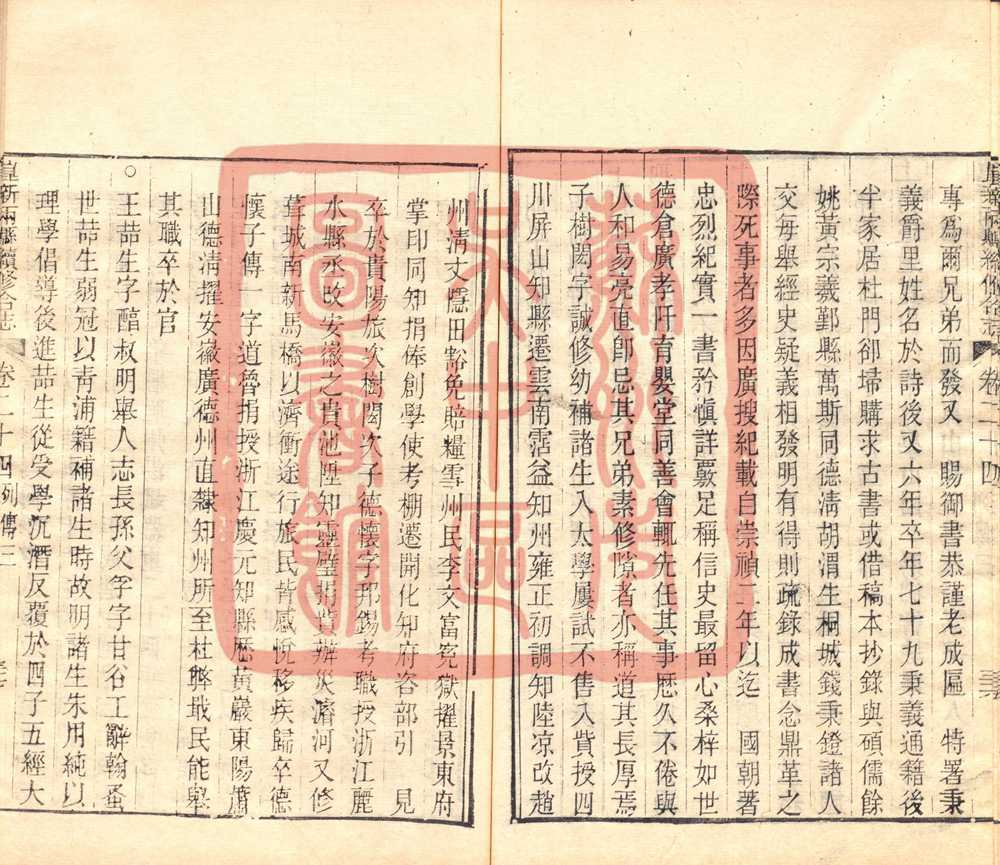 專爲爾兄弟而發又 賜御書恭謹老成匾 特署秉
義爵里姓名於詩後又六年卒年七十九秉義通籍後
半家居杜門卻埽購求古書或借稿本抄錄與碩儒餘
姚黃宗羲鄞縣萬斯同德淸胡渭生桐城錢秉鐙諸人
交每舉經史疑義相發明有得則疏錄成書念鼎革之
際死事者多因廣搜紀載自崇禎二年以迄 國朝著
忠烈紀實一書矜愼詳覈足稱信史最留心桑梓如世
德倉廣孝阡育嬰堂同善會輒先任其事歷久不倦與
人和易亮直卽忌其兄弟素修隙者亦稱道其長厚焉
子樹閎字誠修幼補諸生入太學屢試不售入貲授四
川屏山知縣遷雲南霑益知州雍正初調知陸凉改趙
州淸丈隱田豁免賠糧雪州民李文富寃獄擢景東府
掌印同知捐俸創學使考棚遷開化知府咨部引 見
卒於貴陽旅次樹閎次子德懷字邦錫考職授浙江麗
水縣丞改安徽之貴池陞知靈璧捐貲辦災濬河又修
葺城南新馬橋以濟衝途行旅民皆感悅移疾歸卒德
懷子傳一字道魯捐授浙江慶元知縣歷黃巖東陽蕭
山德淸擢安徽廣德州直隸知州所至杜弊戢民能舉
其職卒於官
○王喆生字醕叔明舉人志長孫父孚字甘谷工辭翰蚤
世喆生弱冠以靑浦籍補諸生時故明諸生朱用純以
理學倡導後進喆生從受學沉潛反覆於四子五經大
崑新兩縣續修合志 卷二十四 列傳三